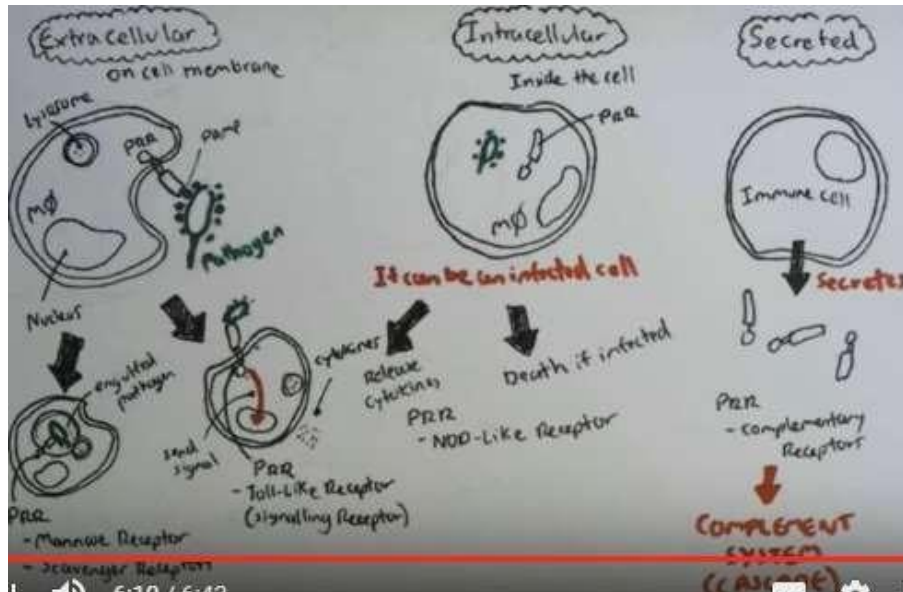 Extracellular
on cell membrane
Lysosome
PRR
PAMP
MØ
Pathogen
Nucleus
engulfed
pathogen
PRR
- Mannose Receptor
- Scavenger Receptors
cytokines
send
signal
PRR
- Toll-Like Receptor
(signalling Receptor)
Intracellular
Inside the cell
PRR
MØ
It can be an infected cell
Release
cytokines
Death if infected
PRR
- NOD-Like Receptor
Secreted
Immune cell
Secretes
PRR
- Complementary
Receptors
COMPLEMENT
SYSTEM
(CASCADE)
6:19 / 6:42